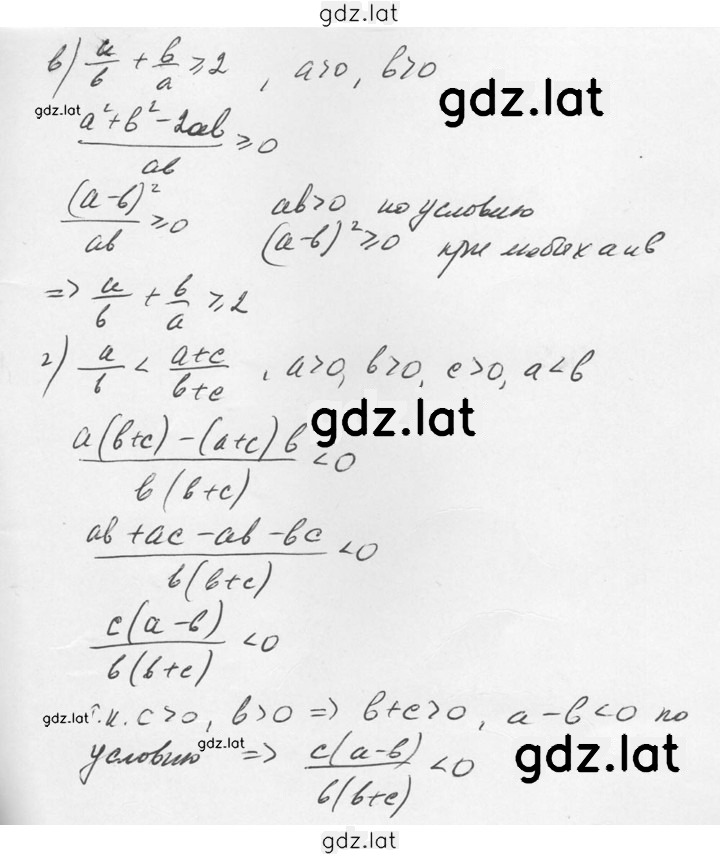 gdz.lat
в) a/b + b/a ≥ 2, a>0, b>0
gdz.lat
gdz.lat
(a² + b² - 2ab)/ab ≥ 0
(a-b)²/ab ≥ 0 ab>0 по условию
(a-b)² ≥ 0 при любых a и b
=> a/b + b/a ≥ 2
г) a/b < (a+c)/(b+c), a>0, b>0, c>0, a<b
gdz.lat
(a(b+c) - (a+c)b)/(b(b+c)) < 0
(ab + ac - ab - bc)/(b(b+c)) < 0
c(a-b)/(b(b+c)) < 0
gdz.lat
Т.к. c>0, b>0 => b+c>0, a-b<0 по
gdz.lat
условию => c(a-b)/(b(b+c)) < 0
gdz.lat
gdz.lat